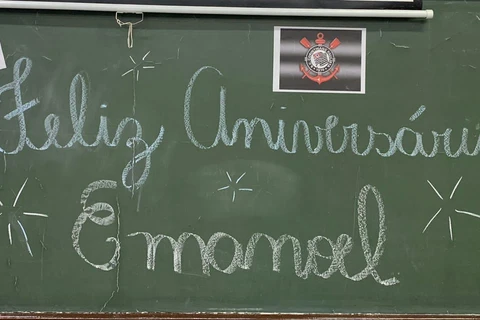 Feliz Aniversári
Emanoel